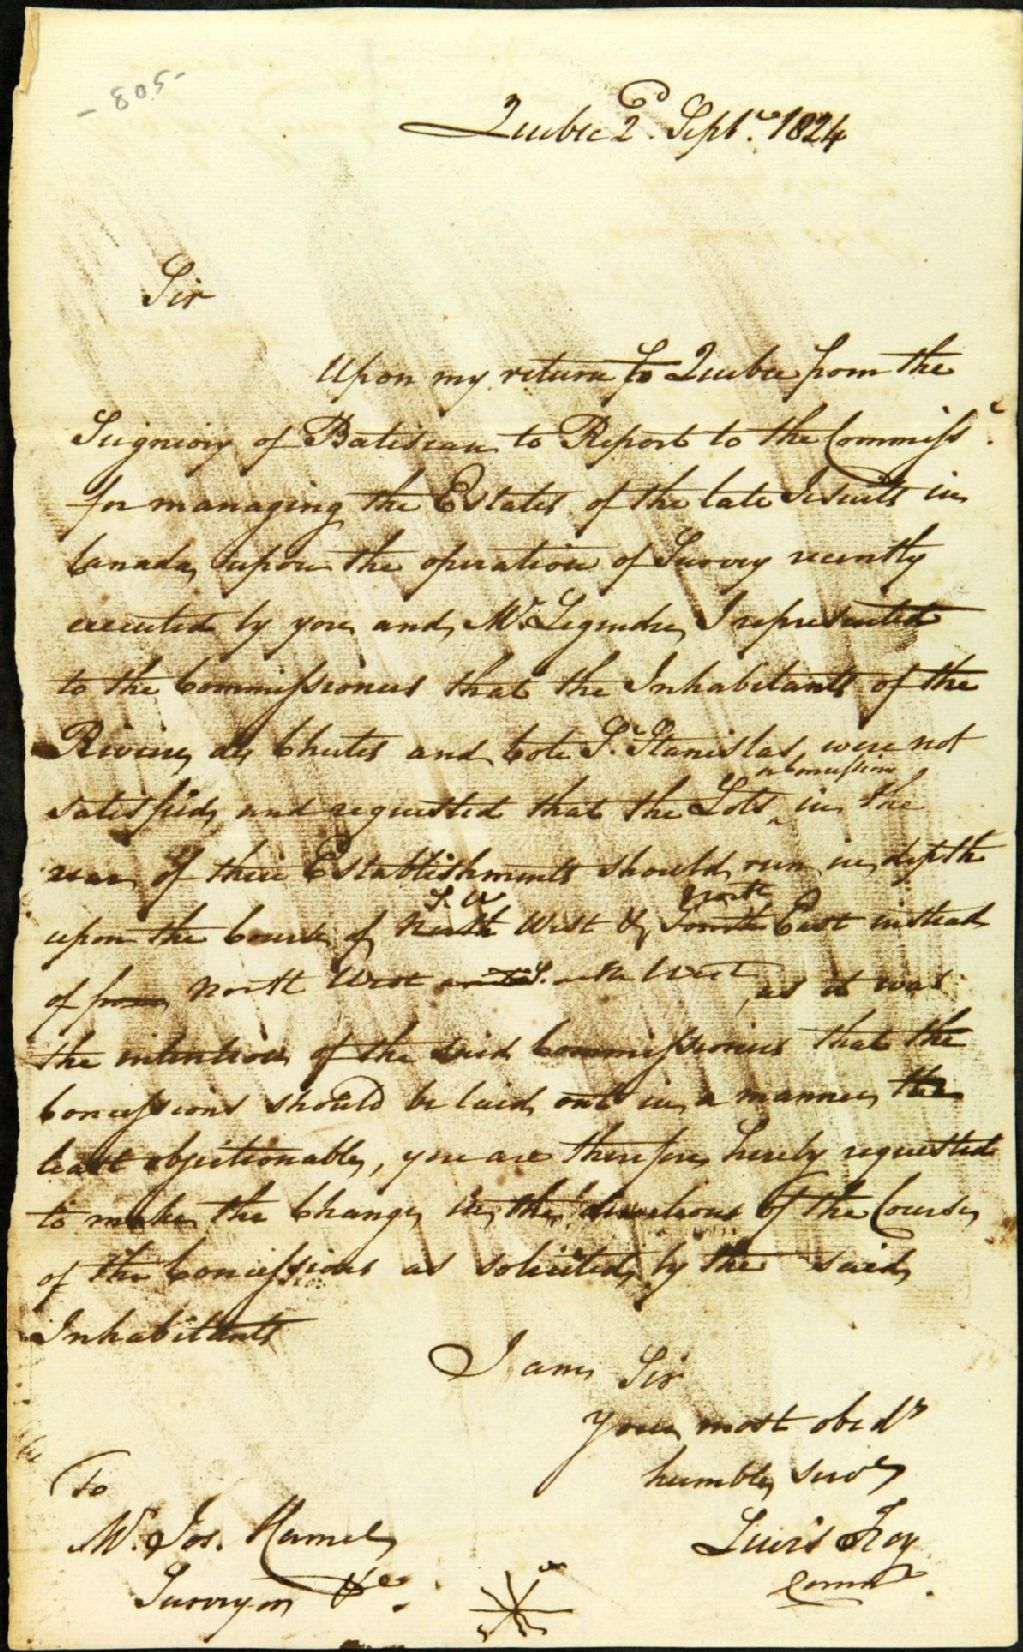 - 805 -
Quebec 2d. Septr. 1824
Sir
Upon my return to Quebec from the
Seigniory of Batiscan to Report to the Commissrs.
for managing the Estates of the late Jesuits in
Canada, upon the operation of Survey recently
executed by you and Mr. Legendre, I represented
to the Commissioners that the Inhabitants of the
Riviere des Chutes and Cote St. Stanislas, were not
or Concession
satisfied, and requested that the Lots in the
rear of their Establishments should run in depth
S. W North
upon the Course of North West & South East instead
of from North West West as it was
the intention of the said Commissioners that the
Concessions should be laid out in a manner the
least objectionable, you are therefore hereby requested
to make the Change in the directions of the Course
of the Concessions as solicited by the said
Inhabitants
I am Sir
Your most obedt
humble servt
Lewis Foy
To
Mr. Jos. Hamel
Surveyor &c.